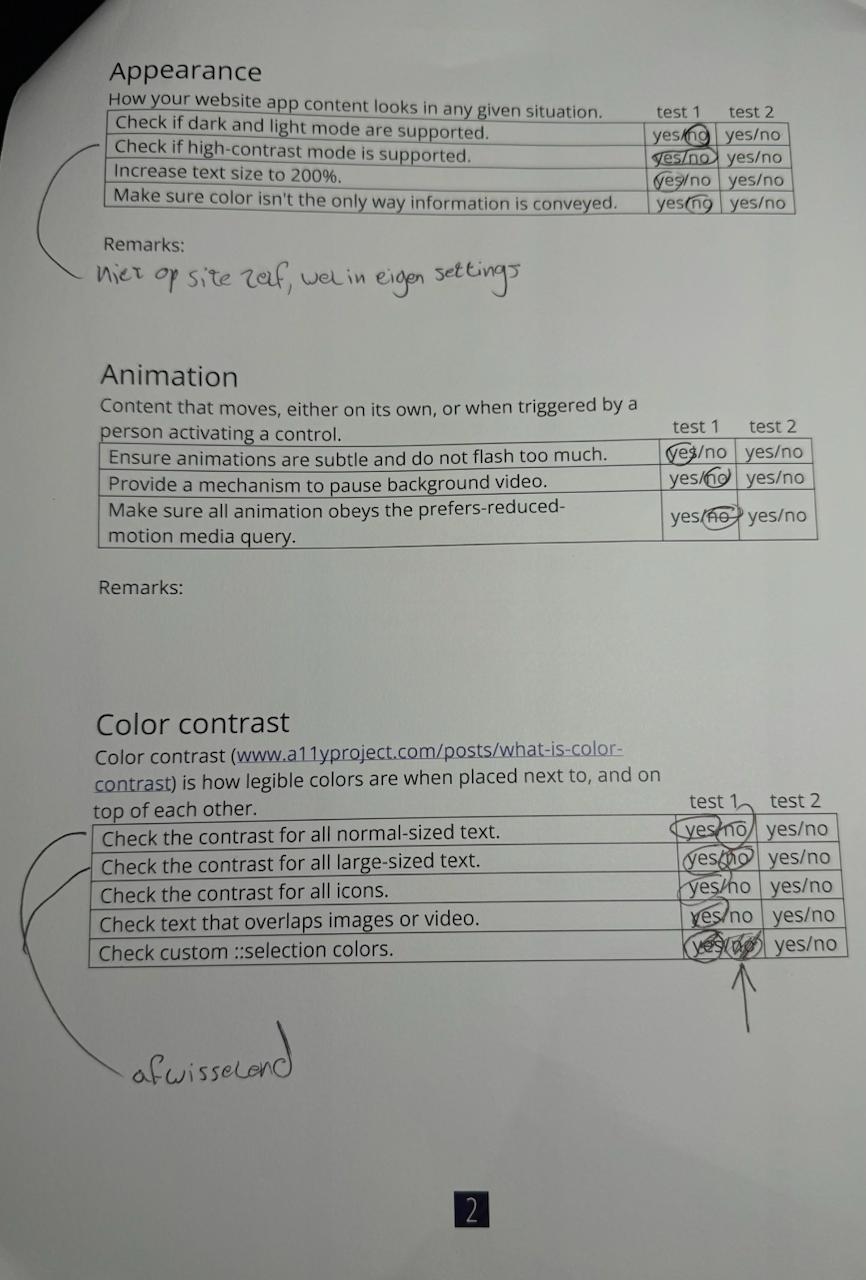 Appearance
How your website app content looks in any given situation. test 1 test 2
Check if dark and light mode are supported. yes/no yes/no
Check if high-contrast mode is supported. yes/no yes/no
Increase text size to 200%. yes/no yes/no
Make sure color isn't the only way information is conveyed. yes/no yes/no
Remarks:
niet op site zelf, wel in eigen settings
Animation
Content that moves, either on its own, or when triggered by a
person activating a control. test 1 test 2
Ensure animations are subtle and do not flash too much. yes/no yes/no
Provide a mechanism to pause background video. yes/no yes/no
Make sure all animation obeys the prefers-reduced-
motion media query. yes/no yes/no
Remarks:
Color contrast
Color contrast (www.a11yproject.com/posts/what-is-color-
contrast) is how legible colors are when placed next to, and on
top of each other. test 1 test 2
Check the contrast for all normal-sized text. yes/no yes/no
Check the contrast for all large-sized text. yes/no yes/no
Check the contrast for all icons. yes/no yes/no
Check text that overlaps images or video. yes/no yes/no
Check custom ::selection colors. yes/no yes/no
afwisselend
2